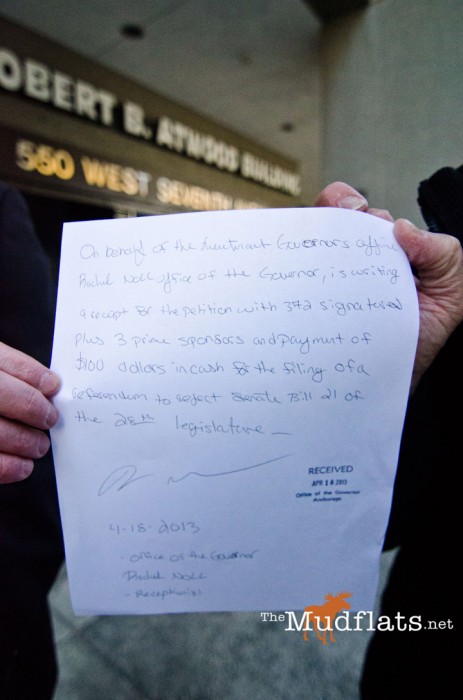 OBERT B. ATWOOD BUILDING
550 WEST SEVENTH
On behalf of the Lieutenant Governors office
Rachel Noll office of the Governor, is writing
a receipt for the petition with 372 signatures
plus 3 prime sponsors and payment of
$100 dollars in cash for the filing of a
referendum to reject Senate Bill 21 of
the 28th legislature
RECEIVED
APR 18 2013
Office of the Governor
Anchorage
4-18-2013
- Office of the Governor
Rachel Noll
- Receptionist
The Mudflats.net